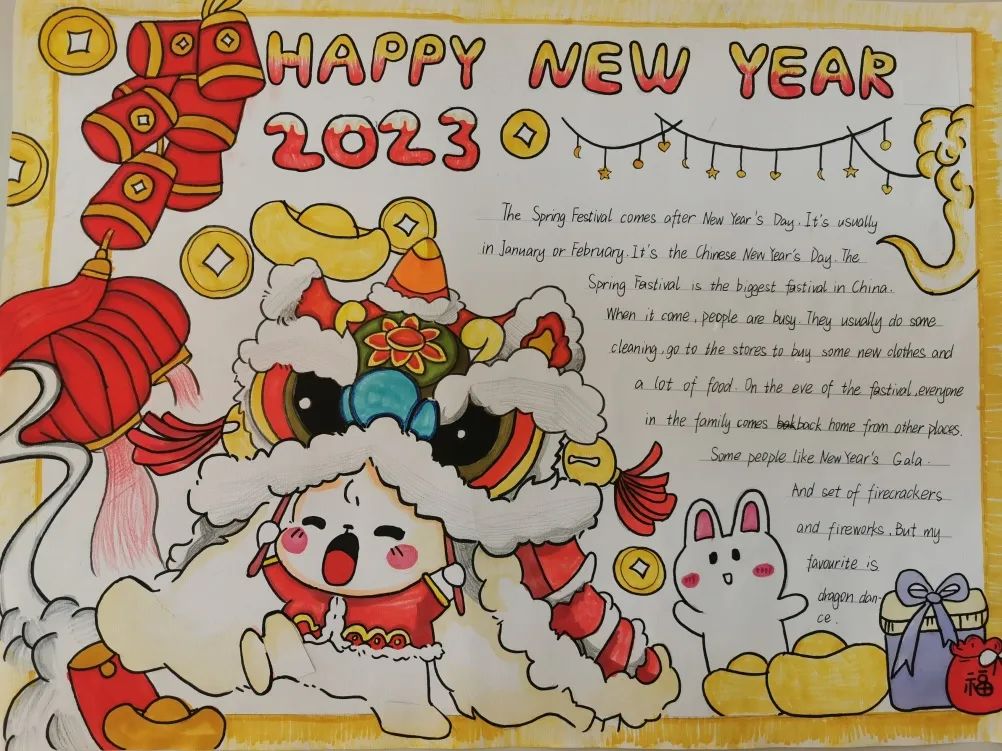 HAPPY NEW YEAR
2023
The Spring Festival comes after New Year's Day. It's usually
in January or February. It's the Chinese New Year's Day. The
Spring Fastival is the biggest fastival in China.
When it come, people are busy. They usually do some
cleaning, go to the stores to buy some new clothes and
a lot of food. On the eve of the fastival, everyone
in the family comes back home from other places.
Some people like New Year's Gala.
And set of firecrackers
and fireworks. But my
favourite is
dragon dan-
ce.
福